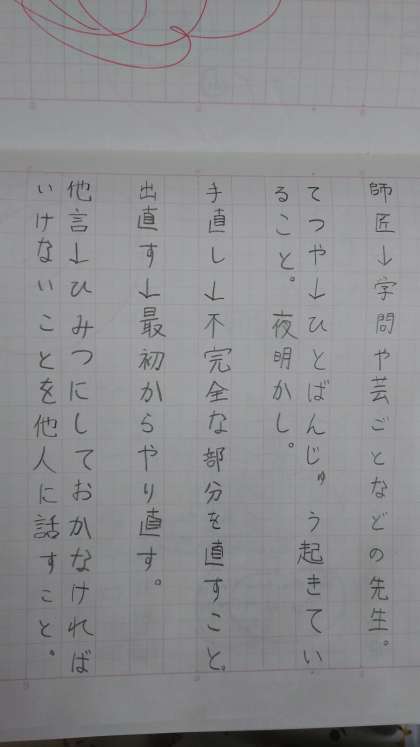 師匠→学問や芸ごとなどの先生。
てつや→ひとばんじゅう起きてい
ること。夜明かし。
手直し→不完全な部分を直すこと。
出直す→最初からやり直す。
他言→ひみつにしておかなければ
いけないことを他人に話すこと。